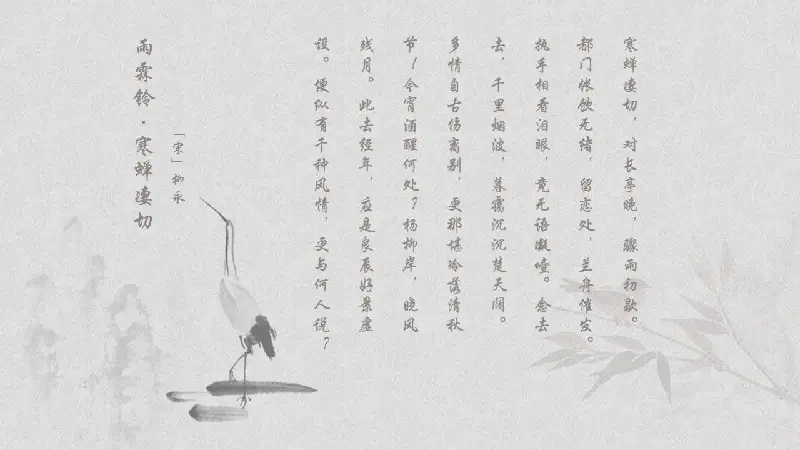 寒蝉凄切，对长亭晚，骤雨初歇。
都门帐饮无绪，留恋处，兰舟催发。
执手相看泪眼，竟无语凝噎。念去
去，千里烟波，暮霭沉沉楚天阔。
多情自古伤离别，更那堪冷落清秋
节！今宵酒醒何处？杨柳岸，晓风
残月。此去经年，应是良辰好景虚
设。便纵有千种风情，更与何人说？
「宋」柳永
雨霖铃·寒蝉凄切